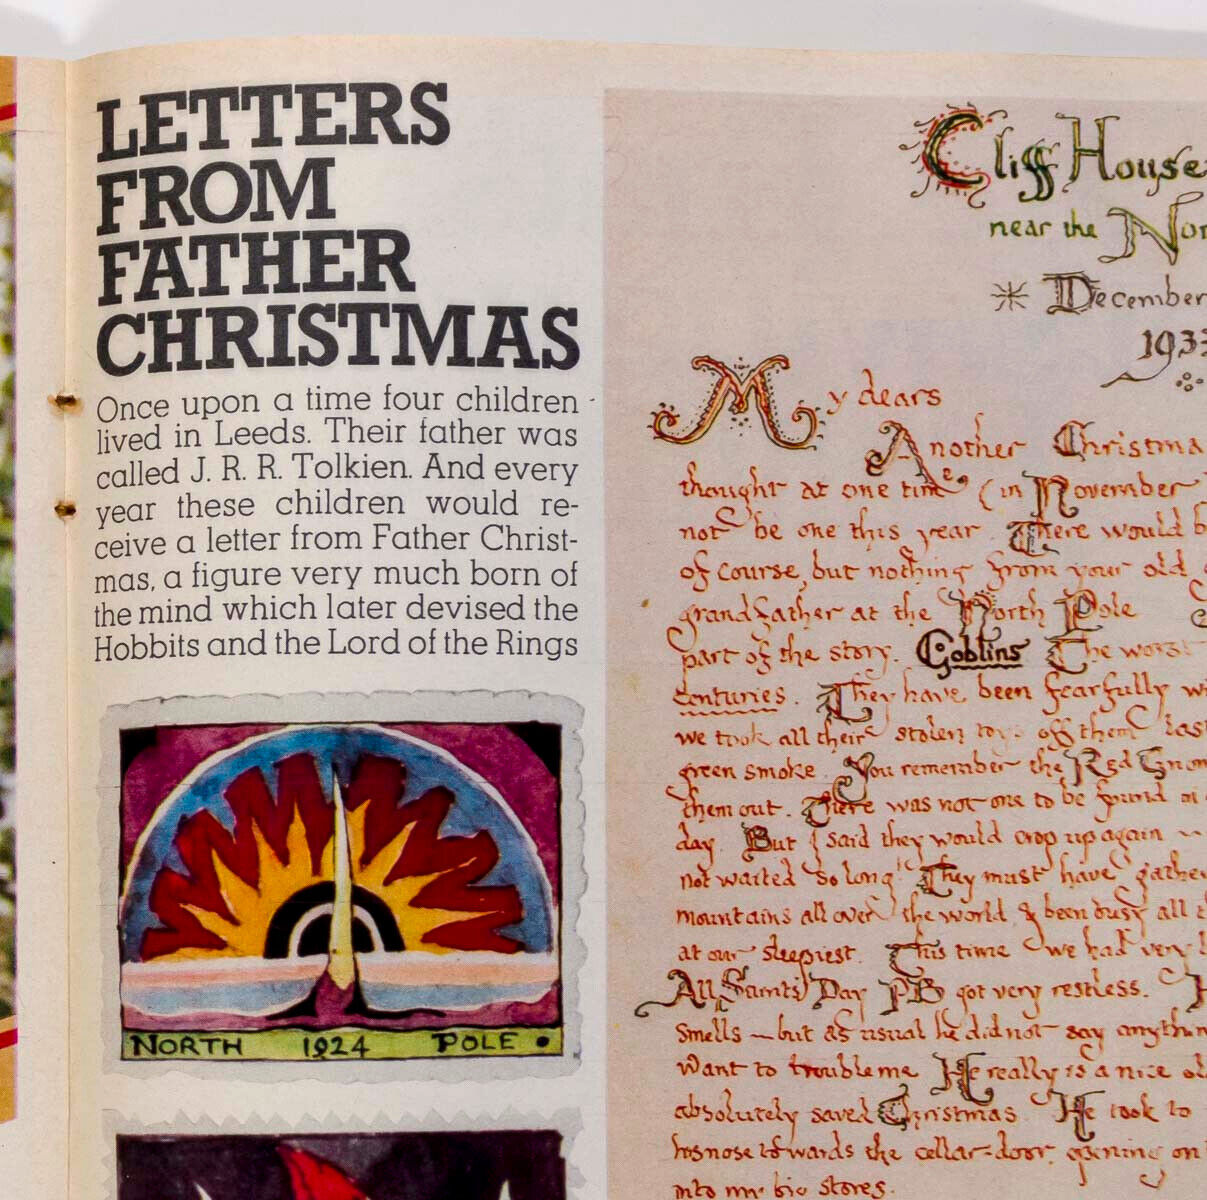 LETTERS
FROM
FATHER
CHRISTMAS
Once upon a time four children
lived in Leeds. Their father was
called J. R. R. Tolkien. And every
year these children would re-
ceive a letter from Father Christ-
mas, a figure very much born of
the mind which later devised the
Hobbits and the Lord of the Rings
NORTH 1924 POLE
Cliff House
near the Nor
December
1933
My dears
Another Christma
thought at one time, (in November
not be one this year. There would b
of course, but nothing from your old
grandfather at the North Pole
part of the story. Goblins The worst
centuries. They have been fearfully wi
we took all their stolen toys off them last
green smoke. You remember the Red Gnom
them out. There was not one to be found in
day. But I said they would crop up again
not waited so long! They must have gathe
mountains all over the world, & been busy all t
at our sleepiest. This time we had very
All Saints' Day PB got very restless.
smells — but as usual he did not say anythin
want to trouble me. He really is a nice ol
absolutely saved Christmas. He took to
his nose towards the cellar-door, opening on
into my big stores.